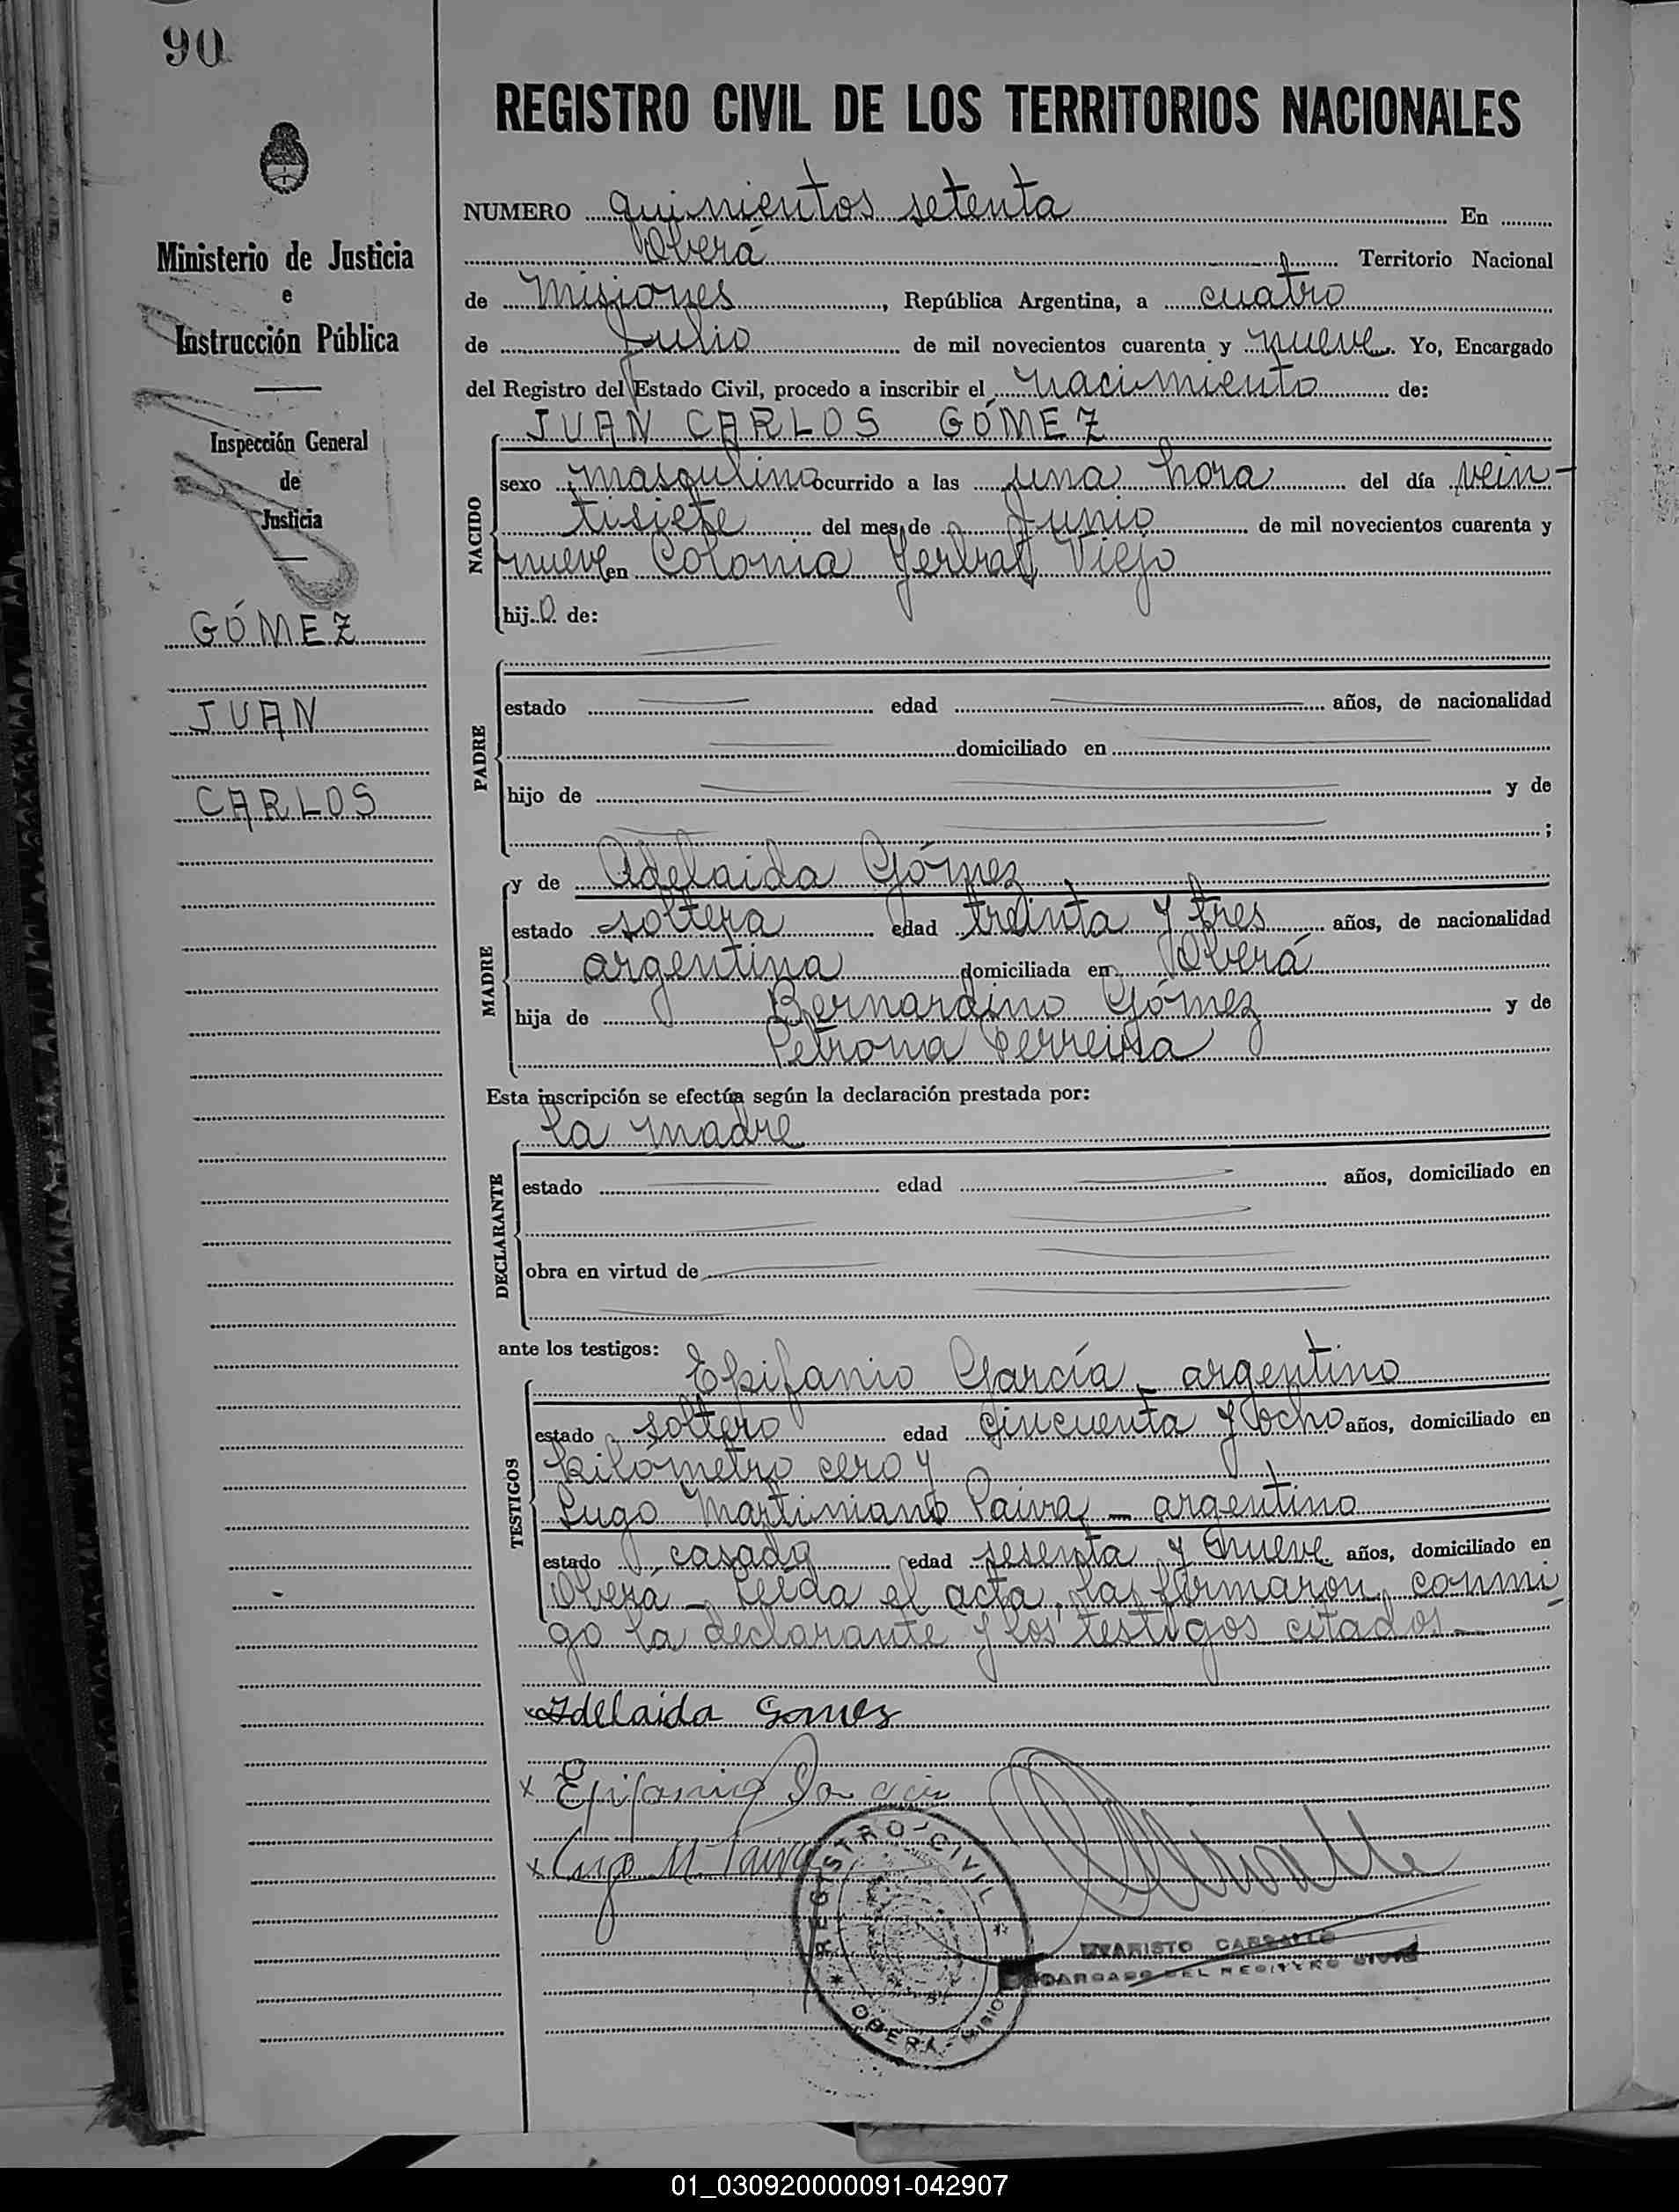 90
REGISTRO CIVIL DE LOS TERRITORIOS NACIONALES
Ministerio de Justicia
e
Instrucción Pública
Inspección General
de
Justicia
GÓMEZ
JUAN
CARLOS
NUMERO quinientos setenta En
Oberá Territorio Nacional
de Misiones, República Argentina, a cuatro
de Julio de mil novecientos cuarenta y nueve. Yo, Encargado
del Registro del Estado Civil, procedo a inscribir el nacimiento de:
JUAN CARLOS GÓMEZ
NACIDO
sexo masqulino ocurrido a las una hora del día vein-
tisiete del mes de Junio de mil novecientos cuarenta y
nueve en Colonia Yerbal Viejo
hijo de:
PADRE
estado edad años, de nacionalidad
domiciliado en
hijo de y de
;
MADRE
y de Adelaida Gómez
estado soltera edad treinta y tres años, de nacionalidad
argentina domiciliada en Oberá
hija de Bernardino Gómez y de
Petrona Ferreira
Esta inscripción se efectúa según la declaración prestada por:
la madre
DECLARANTE
estado edad años, domiciliado en
obra en virtud de
ante los testigos:
TESTIGOS
Epifanio García - argentino
estado soltero edad cincuenta y ocho años, domiciliado en
kilómetro cero y
Lugo Martiniano Paiva - argentino
estado casado edad sesenta y nueve años, domiciliado en
Oberá - Leída el acta, las firmaron conmi
go la declarante y los testigos citados -
x Adelaida Gomes
x Epifanio Garcia
x Lugo M. Paiva
REGISTRO CIVIL
OBERA - MISIO
EVARISTO
ENCARGADO DEL REGISTRO CIVIL
01_030920000091-042907